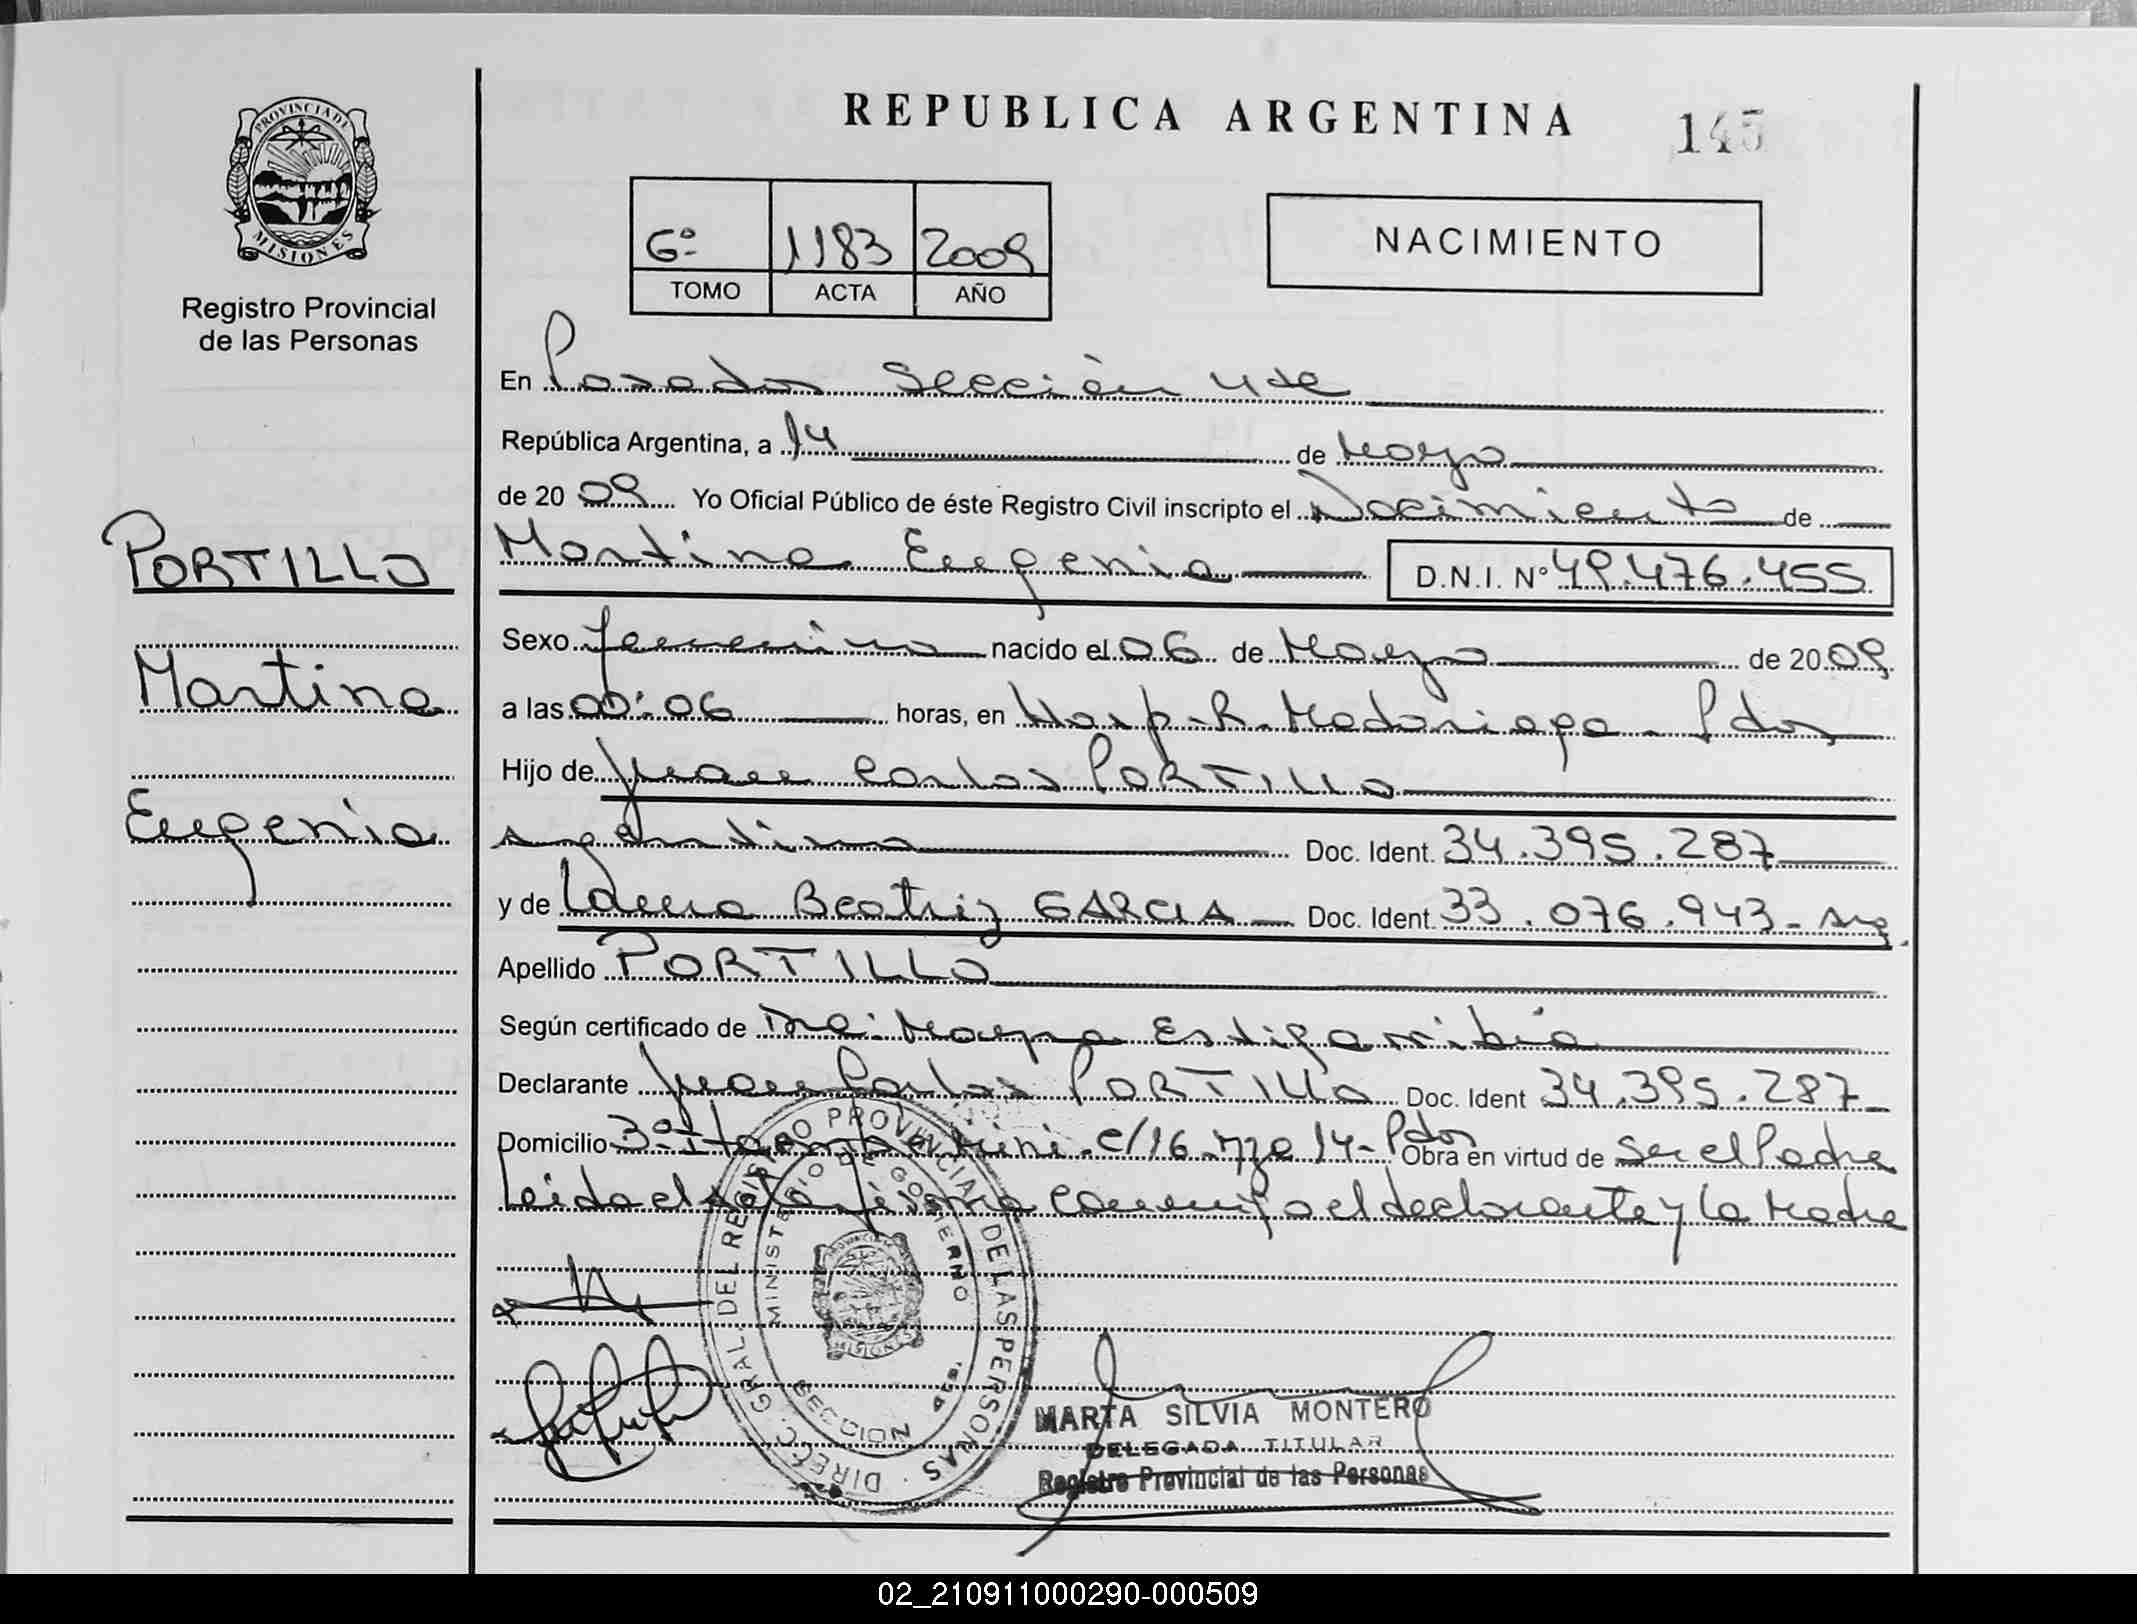 REPUBLICA ARGENTINA
145
PROVINCIA DE
MISIONES
Registro Provincial
de las Personas
6º 1183 2009
TOMO ACTA AÑO
NACIMIENTO
En Posadas Sección 4ta
República Argentina, a 14 de Mayo
de 2009 Yo Oficial Público de éste Registro Civil inscripto el Nacimiento de
Martina Eugenia D.N.I. Nº 49.476.455
PORTILLO
Martina
Eugenia
Sexo femenino nacido el 06 de Mayo de 2009
a las 00:06 horas, en Hosp. R. Madariaga - Pdas
Hijo de Juan Carlos PORTILLO
argentino Doc. Ident. 34.395.287
y de Laura Beatriz GARCIA Doc. Ident. 33.076.943 - arg.
Apellido PORTILLO
Según certificado de Mayra Estigarribia
Declarante Juan Carlos PORTILLO Doc. Ident 34.395.287
Domicilio Mini - c/16 - mza 14 - Pdas Obra en virtud de Ser el Padre
Leida el acta firma conmigo el declarante y la Madre
DIREC. GRAL. DEL REGISTRO PROVINCIAL DE LAS PERSONAS
MINISTERIO DE GOBIERNO
SECCION
MARTA SILVIA MONTERO
DELEGADA TITULAR
Registro Provincial de las Personas
02_210911000290-000509